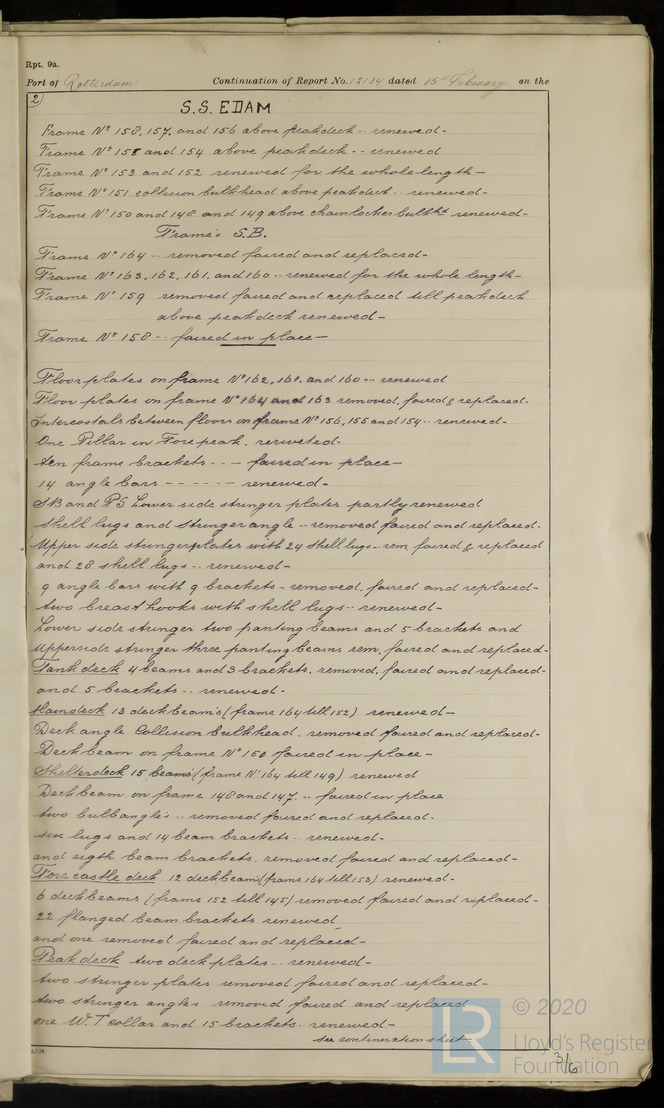 Rpt. 9a.
Port of Rotterdam Continuation of Report No. 12134 dated 15th February on the
2)
S.S. EDAM
Frame No 158, 157, and 156 above peakdeck -- renewed -
Frame No 155 and 154 above peakdeck -- renewed
Frame No 153 and 152 renewed for the whole length -
Frame No 151 collision bulkhead above peakdeck -- renewed -
Frame No 150 and 148 and 149 above chainlocker bulkhd renewed -
Frame's S.B.
Frame No 164 --- removed faired and replaced -
Frame No 163, 162, 161, and 160 -- renewed for the whole length -
Frame No 159 removed faired and replaced till peakdeck
above peakdeck renewed -
Frame No 158 -- faired in place -
Floorplates on frame No 162, 161, and 160 -- renewed
Floor plates on frame No 164 and 163 removed, faired & replaced.
Intercostals between floors on frame No 156, 155 and 154 -- renewed -
One Pillar in Forepeak, reriveted -
ten frame brackets --- faired in place -
14 angle bars ------ renewed -
SB and PS Lower side stringer plates partly renewed
shell lugs and stringer angle -- removed faired and replaced.
Upper side stringerplates with 24 shell lugs - rem. faired & replaced
and 28 shell lugs -- renewed -
9 angle bars with 9 brackets - removed, faired and replaced -
two breasthooks with shell lugs -- renewed -
Lower side stringer two panting beams and 5 brackets and
Upperside stringer three panting beams rem. faired and replaced -
Tankdeck 4 beams and 3 brackets, removed, faired and replaced -
and 5 brackets -- renewed -
Maindeck 13 deckbeam's (frame 164 till 152) renewed -
Deck angle Collision bulkhead, removed faired and replaced -
Deckbeam on frame No 150 faired in place -
Shelterdeck 15 beams (frame No 164 till 149) renewed
Deckbeam on frame 148 and 147 -- faired in place
two bulbangle's -- removed faired and replaced.
six lugs and 14 beam brackets -- renewed -
and eigth beam brackets, removed faired and replaced -
Forecastle deck 12 deckbeam (frame 164 till 153) renewed -
6 deckbeams (frame 152 till 145) removed faired and replaced -
22 flanged beam brackets renewed
and one removed faired and replaced -
Peakdeck two deck plates -- renewed -
two stringer plates removed faired and replaced -
two stringer angles removed faired and replaced
one W.T collar and 15 brackets -- renewed -
see continuation sheet
3/6
LR
© 2020
Lloyd's Register
Foundation